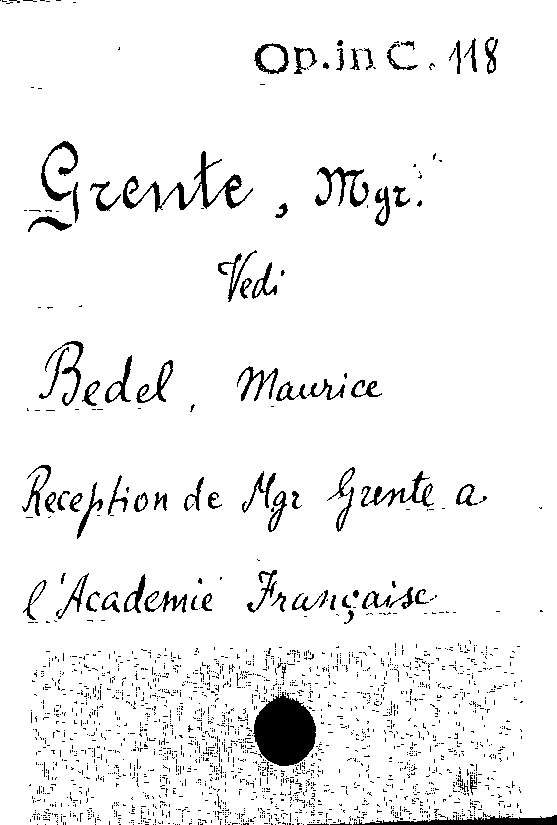 Op. in C. 118
Grente, Mgr.
Vedi
Bedel, Maurice
Reception de Mgr Grente a
l'Academie Française